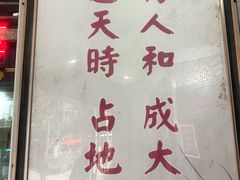 人和 成大
天時 占地